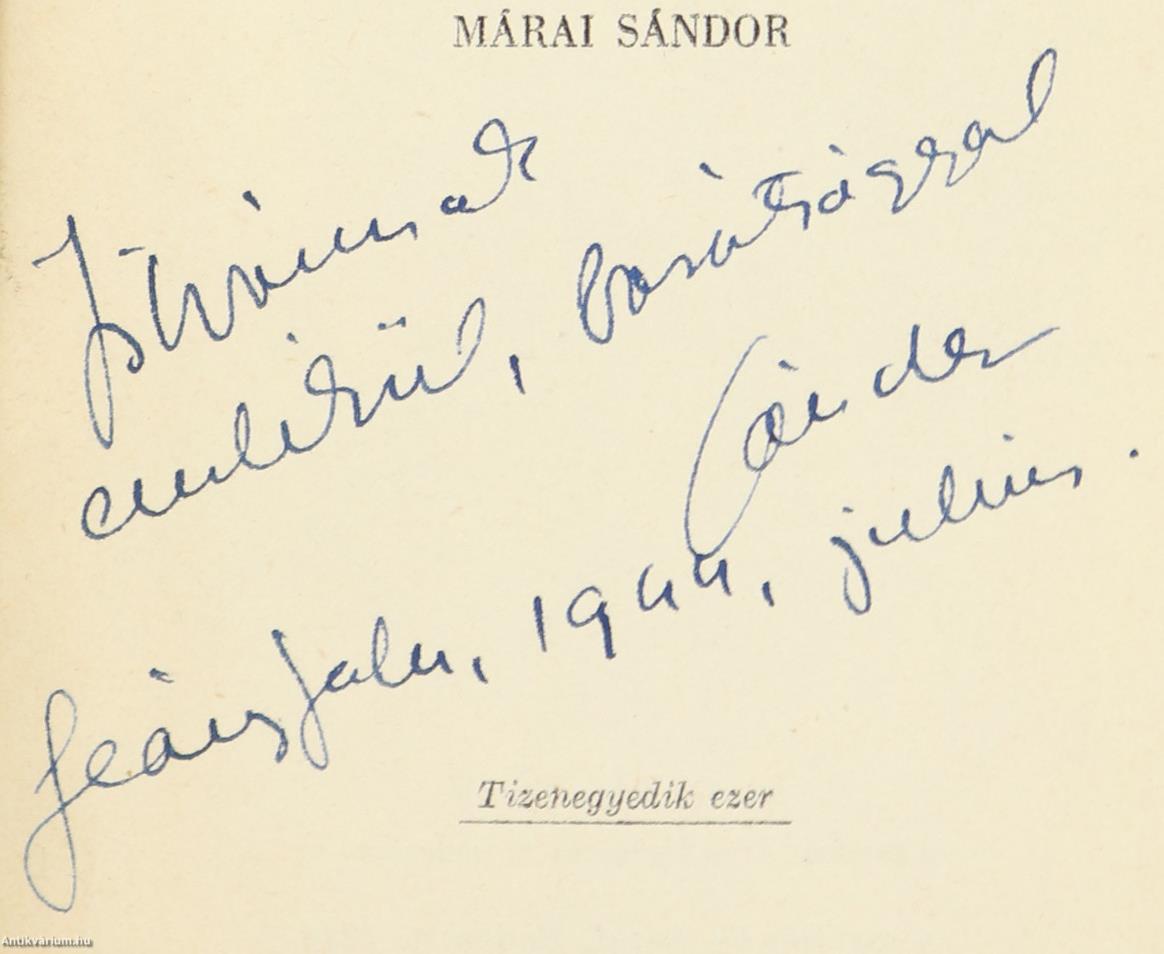 MÁRAI SÁNDOR
Istvánnak
emlékül, barátsággal
Sándor
Leányfalu, 1944, julius.
Tizenegyedik ezer
Antikvárium.hu